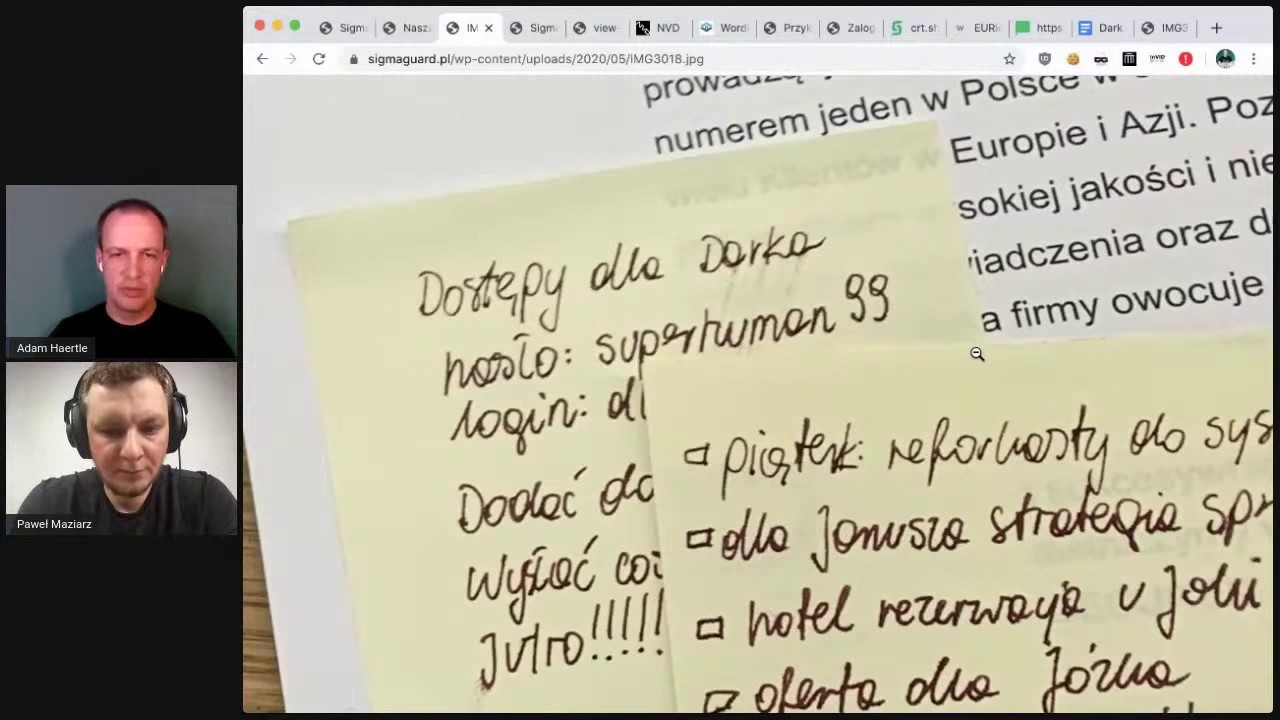 Sigm
Nasz
IM
Sigm
view-
NVD
Word
Przyk
Zalog
crt.sh
EURi
https
Dark
IMG3
sigmaguard.pl/wp-content/uploads/2020/05/IMG3018.jpg
prowadzą
numerem jeden w Polsce w
wielu Klientów w Europie i Azji. Poz
sokiej jakości i nie
wiadczenia oraz d
a firmy owocuje
Dostępy dla Darka
hasło: superhuman99
login: dl
Dodać do
Wysłać coś
Jutro!!!!!
piątek: reforkasty do sys
dla Janusza strategia spr
hotel rezerwacja u Joli
oferta dla Józka
Adam Haertle
Paweł Maziarz